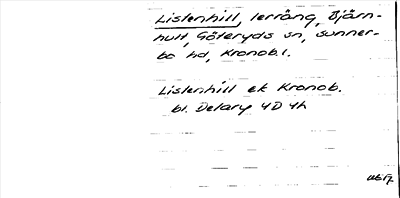 Listenhill, terräng, Björn-
hult, Göteryds sn, Sunner-
bo hd, Kronob. l.
Listenhill ek Kronob.
bl. Delary 4D 4h